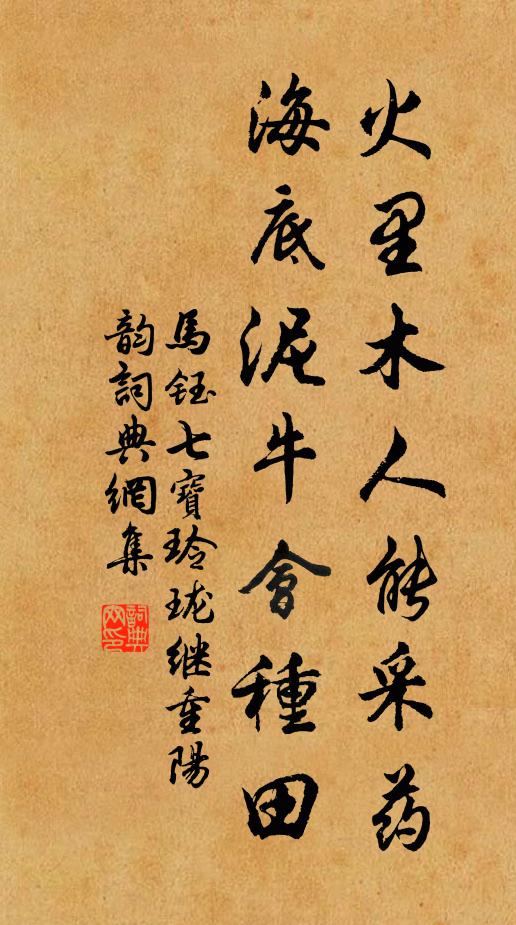 火里木人能采药
海底泥牛會種田
馬鈺七寶玲珑继重陽
韵詞典網集
詞典網印